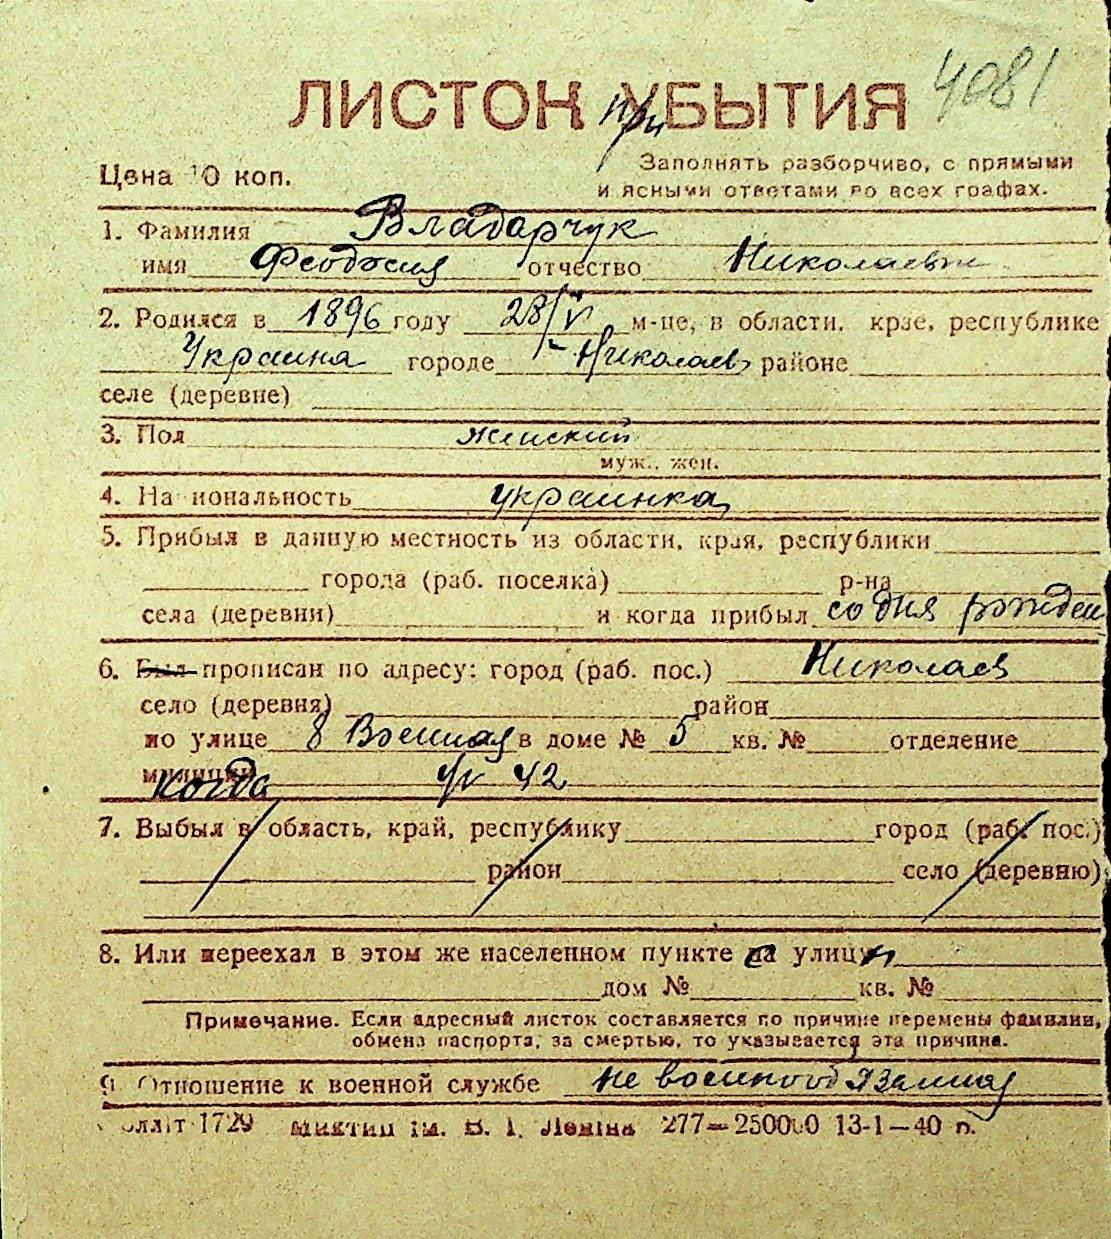 4081
ЛИСТОК при УБЫТИЯ
Цена 10 коп.
Заполнять разборчиво, с прямыми
и ясными ответами во всех графах.
1. Фамилия Владарчук
имя Феодосия отчество Николаевн
2. Родился в 1896 году 28/V м-це, в области, крае, республике
Украина городе Николаев районе
селе (деревне)
3. Пол женский
муж., жен.
4. Национальность украинка
5. Прибыл в данную местность из области, края, республики
города (раб. поселка) р-на
села (деревни) и когда прибыл со дня рожден
6. Был прописан по адресу: город (раб. пос.) Николаев
село (деревня) район
по улице 8 Военная в доме № 5 кв. № отделение
милиции когда 42
7. Выбыл в область, край, республику город (раб. пос.)
район село (деревню)
8. Или переехал в этом же населенном пункте с улицы
дом № кв. №
Примечание. Если адресный листок составляется по причине перемены фамилии,
обмена паспорта, за смертью, то указывается эта причина.
9. Отношение к военной службе не военнообязанная
1729 ім. В. І. Леніна 277—250000 13-1—40 р.